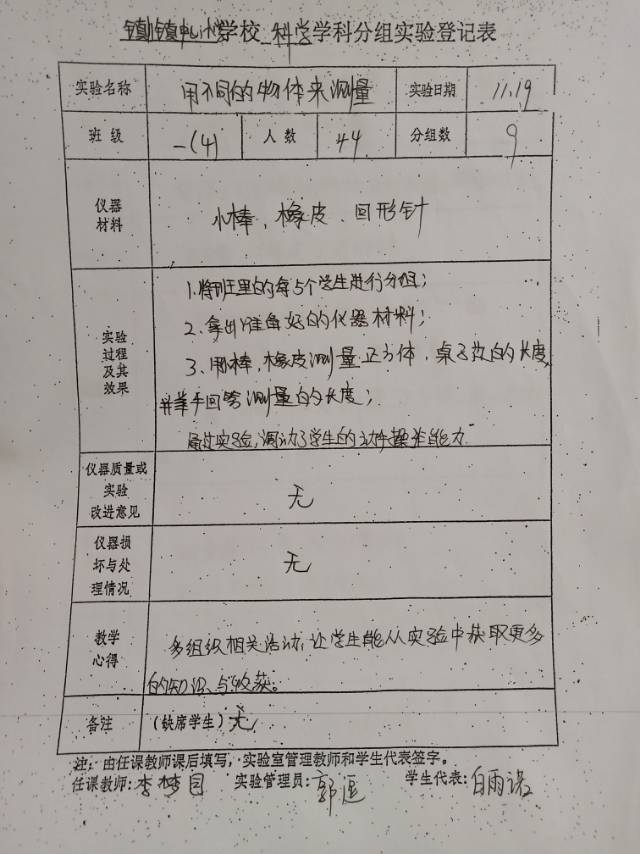 镇中心小学校 科学学科分组实验登记表
实验名称 用不同的物体来测量 实验日期 11.19
班级 一(4) 人数 44 分组数 9
仪器材料 小棒,橡皮、回形针
实验过程及其效果
1.将班里的每5个学生进行分组;
2.每组准备好的仪器材料;
3.用小棒,橡皮测量正方体、桌子边的长度,
并举手回答测量的长度;
通过实验,调动了学生的动手操作能力
仪器质量或实验改进意见 无
仪器损坏与处理情况 无
教学心得 多组织相关活动,让学生能从实验中获取更多
的知识与收获。
备注 (缺席学生)无
注:由任课教师课后填写,实验室管理教师和学生代表签字。
任课教师:李梦 实验管理员:郭 学生代表:白雨诺